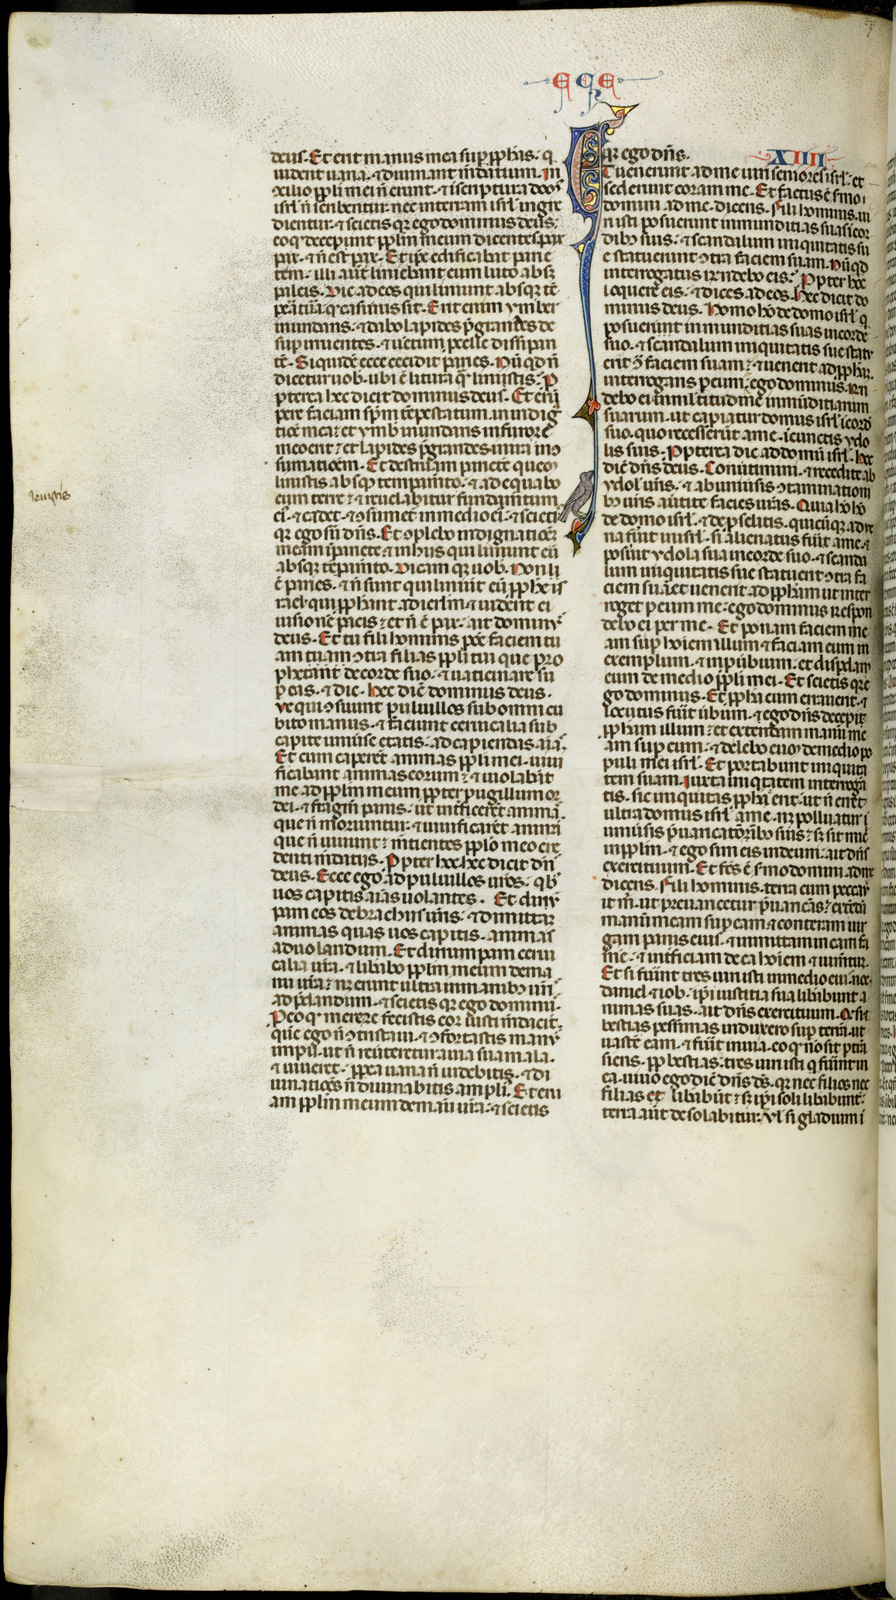 EÇE
deus. Et erit manus mea sup ꝓphas. q
uident uana. ⁊ diuinant mdatium. In
ɔsilio ppli mei ñ erunt. ⁊ i scriptura dom9
isrl ñ scribentur. nec in terram isrl ingre
dientur. ⁊ scietis qr ego dominus deus.
eo ꝙ deceperint pplm meum dicentes pax
pax. ⁊ ñ est pax. Et ip̃e edificabat parie
tem. illi aut̃ liniebant eum luto absq3
paleis. Dic ad eos qui liniunt absq3 tẽ
peratura ꝙ casurus sit. Erit enim ymber
inundans. ⁊ dabo lapides ꝑgrandes de
sup irruentes. ⁊ uentum ꝓcelle dissipan
tẽ. Siquidẽ ecce cecidit paries. Nũqd ñ
dicetur uob. ubi ẽ litura quã linistis. P
pterea hec dicit dominus deus. Et eru
pere faciam spm tẽpestatum in indig
tiõe mea. et ymb inundans in furore
meo erit. et lapides ꝑgrandes in ira in ɔ
sumatiõem. Et destruam parietẽ quem
linistis absq3 temꝑamto. ⁊ adequabo
eum terre. ⁊ reuelabitur fundamtum
ei9. ⁊ cadet. ⁊ ɔsumet in medio ei9. ⁊ scietis
qr ego sũ dñs. Et ɔplebo indignatiõem
meam in pariete. ⁊ in his qui liniunt eũ
absq3 tẽꝑamto. Dicam qr uob. Non
ẽ paries. ⁊ ñ sunt qui liniũt eũ ꝓphe is
rael qui ꝓphant ad ierlm. ⁊ uident ei
uisionẽ pacis. et ñ ẽ pax. ait dominus
deus. Et tu fili hominis pone faciem tu
am ɔtra filias ppli tui que pro
phetant de corde suo. ⁊ uaticinare su
ꝑ eas. ⁊ dic. Hec dic̃ dominus deus.
Ve que ɔsuunt puluillos sub omni cu
bito manus. ⁊ faciunt ceruicalia sub
capite uniuse etatis. ad capiendas aĩas.
Et cum caperent animas ppli mei. uiui
ficabant animas eorum. ⁊ uiolabãt
me ad pplm meum ꝓpter pugillum or
dei. ⁊ fragm panis. ut intficerẽt animas
que ñ moriuntur. ⁊ uiuificarẽt animas
que ñ uiuunt. mtientes pplo meo cre
denti mdatiis. Ppter hoc hec dicit dñs
deus. Ecce ego ad puluillos uros. qb
uos capitis aĩas uolantes. Et dirũ
pam eos de brachiis uris. ⁊ dimittam
animas quas uos capitis. animas
ad uolandum. Et dirumpam cerui
calia ura. ⁊ libabo pplm meum de ma
nu ura. nec erunt ultra in manibus uris
ad predandum. ⁊ scietis qr ego dominus.
Pro eo ꝙ merere fecistis cor iusti mdacit.
que ego ñ ɔtristaui. ⁊ ɔfortastis manus
impii. ut ñ reuteretur a uia sua mala.
⁊ uiueret. ꝓpea uana ñ uidebitis. ⁊ di
uinatiões ñ diuinabitis ampli9. Et eru
am pplm meum de manu ura. ⁊ scietis
qr ego dñs. XIIII
Et uenerunt ad me uiri seniores isrl. et
sederunt coram me. Et factus ẽ smo
domini ad me. dicens. Fili hominis. ui
ri isti posuerunt inmunditias suas i cor
dibus suis. ⁊ scandalum iniquitatis su
e statuerunt ɔtra faciem suam. Nũqd
interrogatus rñdebo eis. Ppter hoc
loquere eis. ⁊ dices ad eos. Hec dicit do
minus deus. Homo hõ de domo isrl q
posuerit inmunditias suas in corde
suo. ⁊ scandalum iniquitatis sue statu
erit ɔ faciem suam. ⁊ uenerit ad ꝓpham
interrogans ꝑ eum. ego dominus rñ
debo ei in mltitudine inmũditiarum
suarum. ut capiatur domus isrl i corde
suo. quo recesserũt a me. i cunctis ydo
lis suis. Ppterea dic ad domũ isrl. Hec
dic̃ dñs deus. Conuertimini. ⁊ recedite ab
ydolis uris. ⁊ ab uniuersis ɔtaminationi
bus uris auertite facies uras. Quia hõ hõ
de domo isrl. ⁊ de proselitis. quicũq aduẽ
na fuit in isrl. si alienatus fuit a me. ⁊
posuit ydola sua in corde suo. ⁊ scanda
lum iniquitatis sue statuerit ɔtra fa
ciem suã. et uenerit ad ꝓpham ut inter
roget ꝑ eum me. ego dominus respon
debo ei per me. Et ponam faciem me
am sup hoiem illum ⁊ faciam eum in
exemplum. ⁊ in ꝓuerbium. et disperdam
eum de medio ppli mei. Et scietis qr e
go dominus. Et ꝓpha cum errauerit. ⁊
locutus fuit uerbum. ⁊ ego dñs decepi
ꝓpham illum. et extendam manũ me
am sup eum. ⁊ delebo eum de medio po
puli mei isrl. Et portabunt iniquita
tem suam. Iuxta iniqtatem interroga
tis. sic iniquitas ꝓphe erit. ut ñ erret
ultra domus isrl a me. nec polluatur i
uniuersis ꝑuaricationibus suis. sed sit michi
in pplm. ⁊ ego sim eis in deum. ait dñs
exercituum. Et fcs ẽ smo domini ad me
dicens. Fili hominis. terra cum peccaũ
it m. ut preuaricetur ꝑuaricãs. extendã
manũ meam sup eam. ⁊ conteram uir
gam panis eius. ⁊ inmittam in eam fa
mẽ. ⁊ intficiam de ea hoiem ⁊ iumtum.
Et si fuint tres uiri isti in medio eius. noe.
daniel ⁊ iob. ipi iustitia sua libabunt a
nimas suas. ait dñs exercituum. Qr si
bestias pessimas induxero sup terrã. ut
uastẽ eam. ⁊ fuit inuia. eo ꝙ nõ sit ptrã
siens. ꝓp bestias. tres uiri isti q fuint in
ea. uiuo ego dic̃ dñs ds. qr nec filios nec
filias et libabũt. sed ipi soli libabunt.
terra aut desolabitur. Vl si gladium i